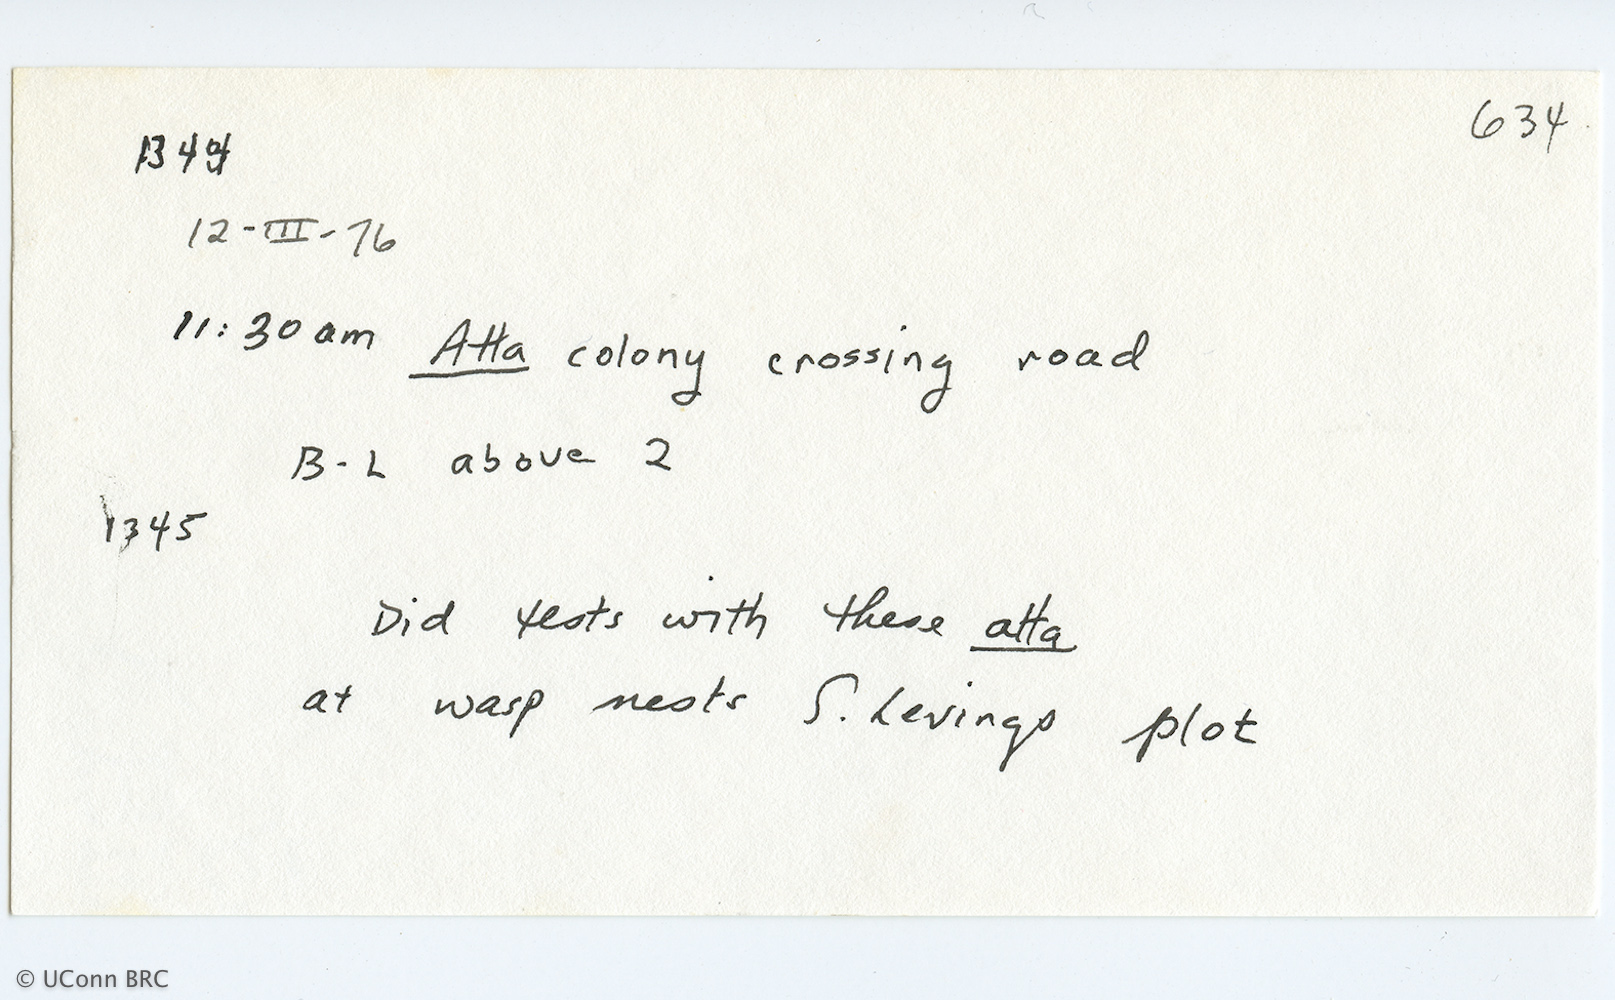 634
1344
12-III-76
11:30 am Atta colony crossing road
B-L above 2
1345
Did tests with these atta
at wasp nests S. Levings plot
© UConn BRC